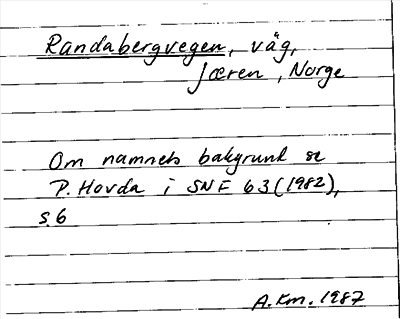 Randabergvegen, väg,
Jæren, Norge
Om namnets bakgrund se
P. Hovda i SNF 63 (1982),
s. 6
A. Km. 1987